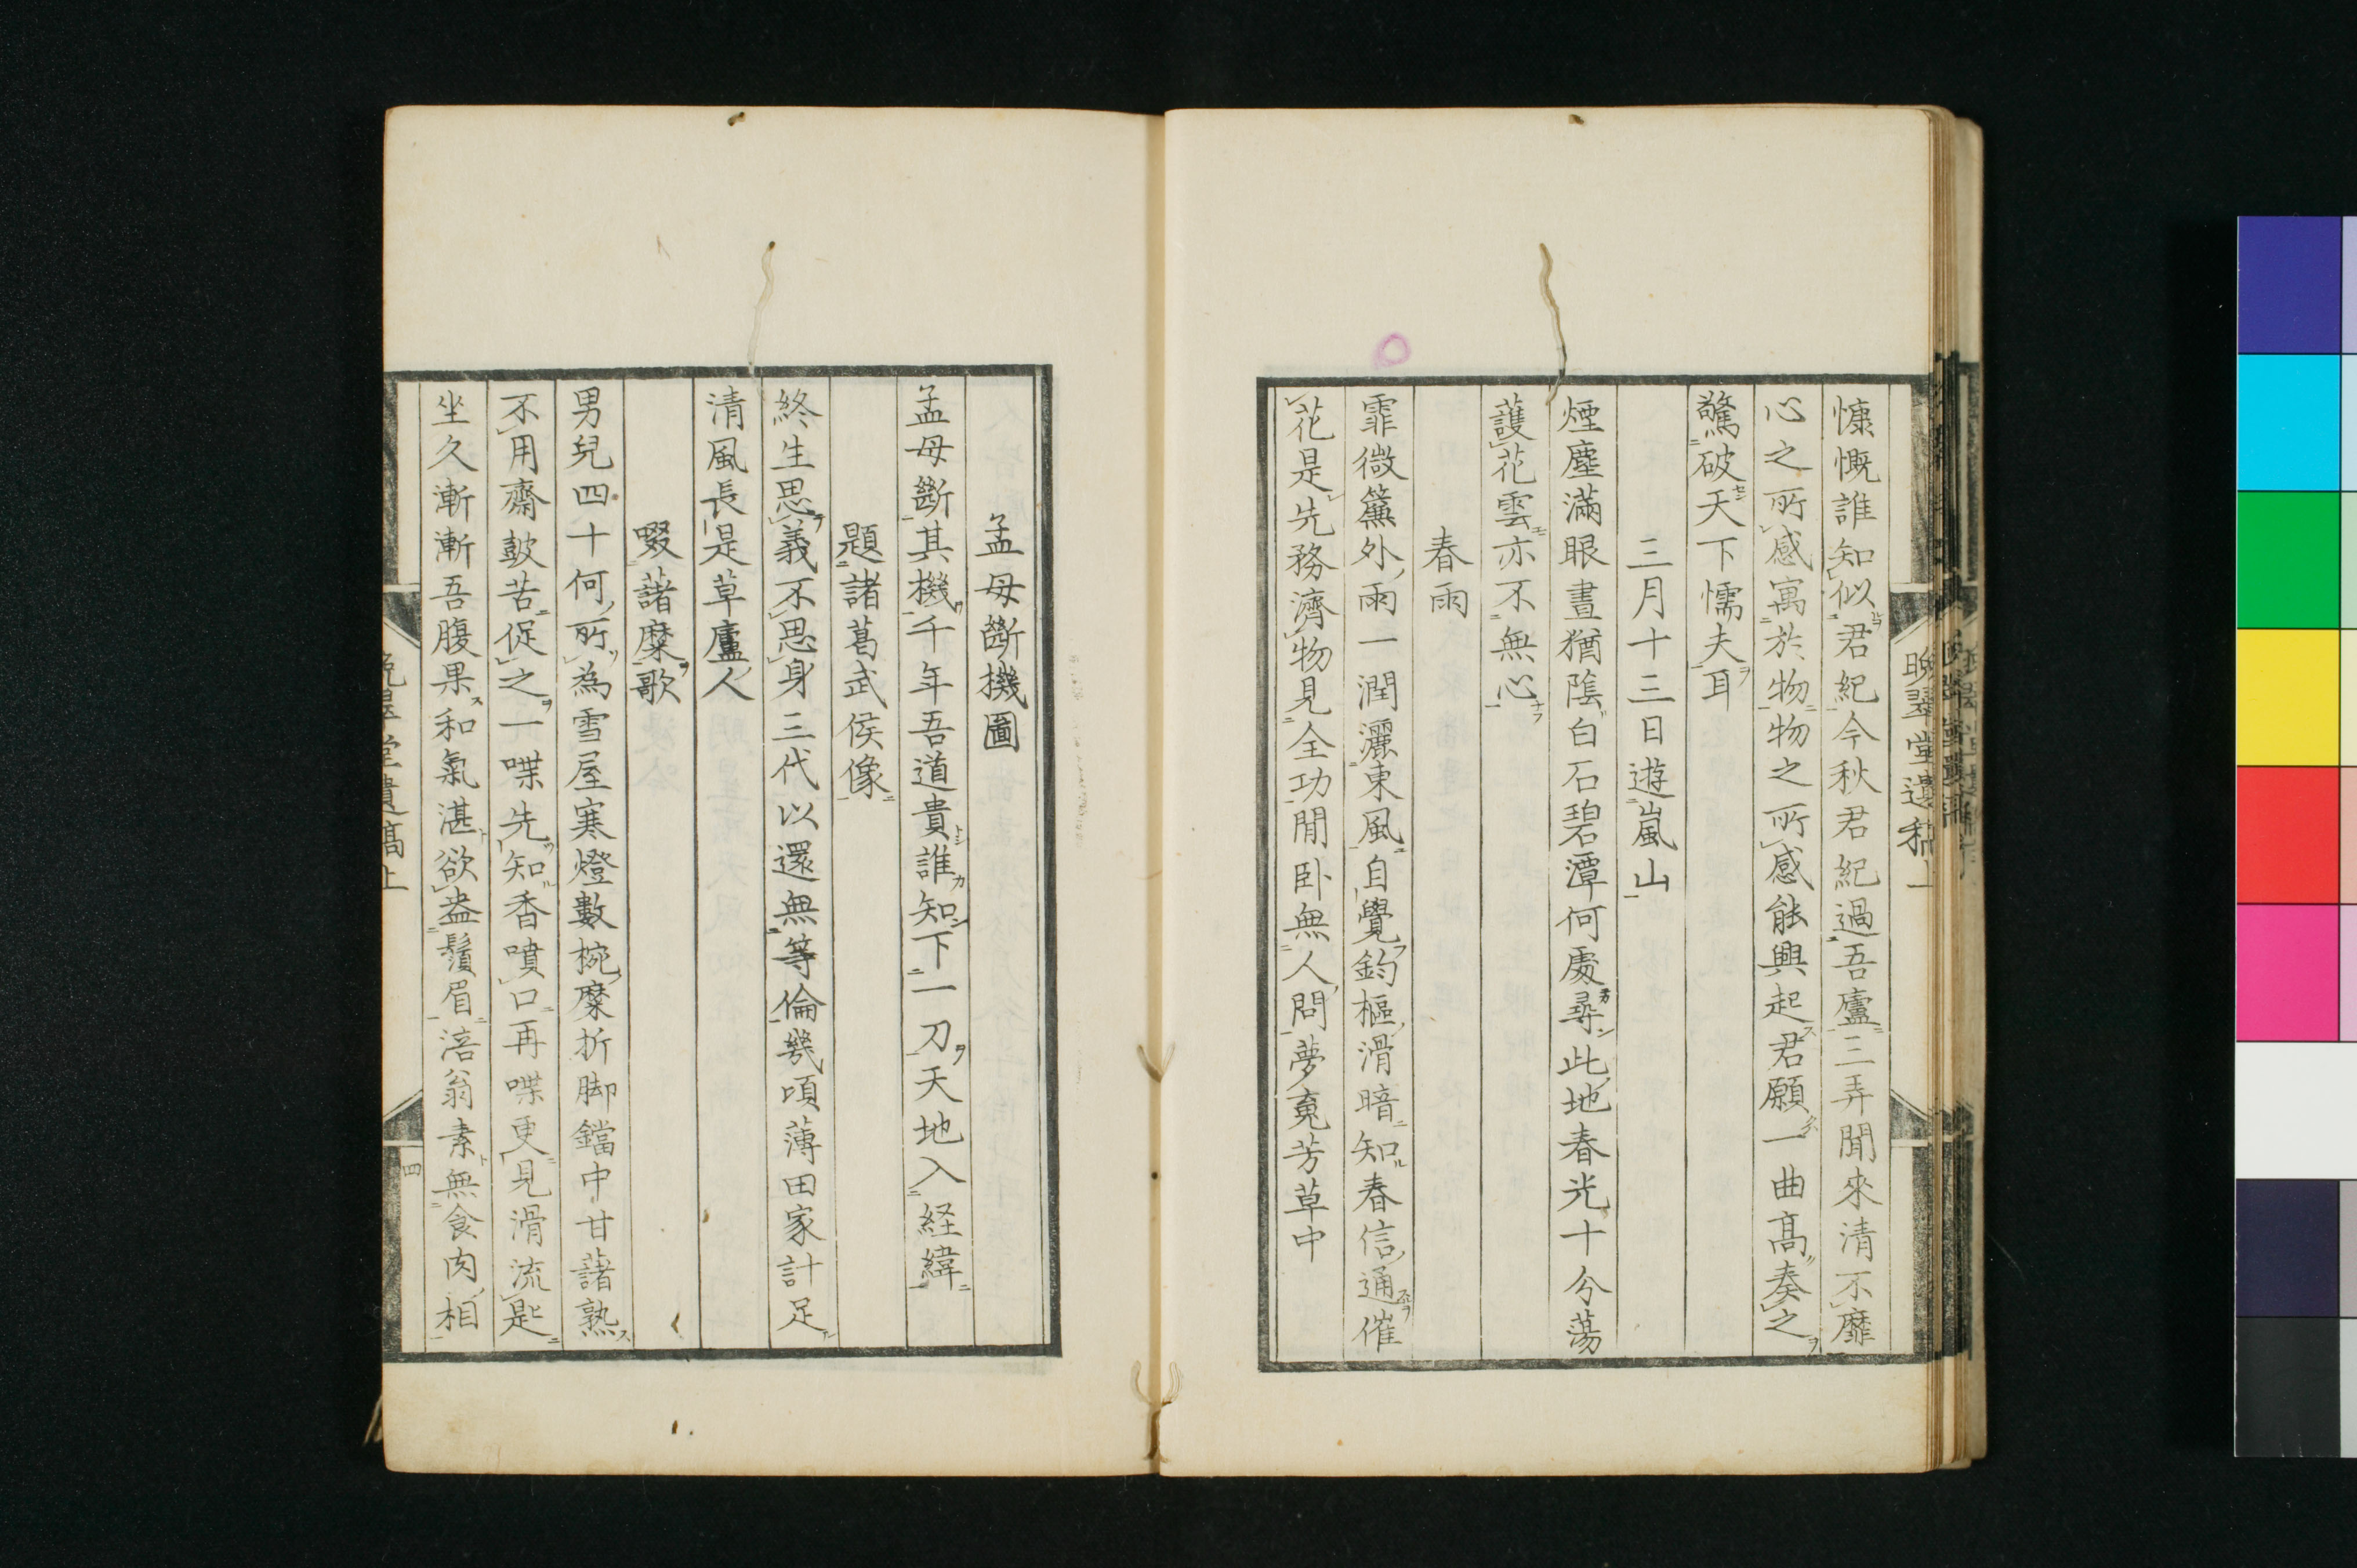 慷慨誰知似君紀今秋君紀過吾廬三弄聞來清不靡
心之所感寓於物物之所感能興起君願一曲高奏之
驚破天下懦夫耳
三月十三日遊嵐山
煙塵滿眼晝猶陰白石碧潭何處尋此地春光十分蕩
護花雲亦不無心
春雨
霏微簾外雨一潤灑東風自覺鈞樞滑暗知春信通催
花是先務濟物見全功閒卧無人問夢寬芳草中
孟母斷機圖
孟母斷其機千年吾道貴誰知下一刀天地入経緯
題諸葛武侯像
終生思義不思身三代以還無等倫幾頃薄田家計足
清風長是草廬人
啜藷糜歌
男兒四十何所為雪屋寒燈數椀糜折脚鐺中甘藷熟
不用齋皷苦促之一喋先知香噴口再喋更見滑流匙
坐久漸漸吾腹果和氣湛欲盎鬚眉涪翁素無食肉相
晩翠堂遺稿上
四